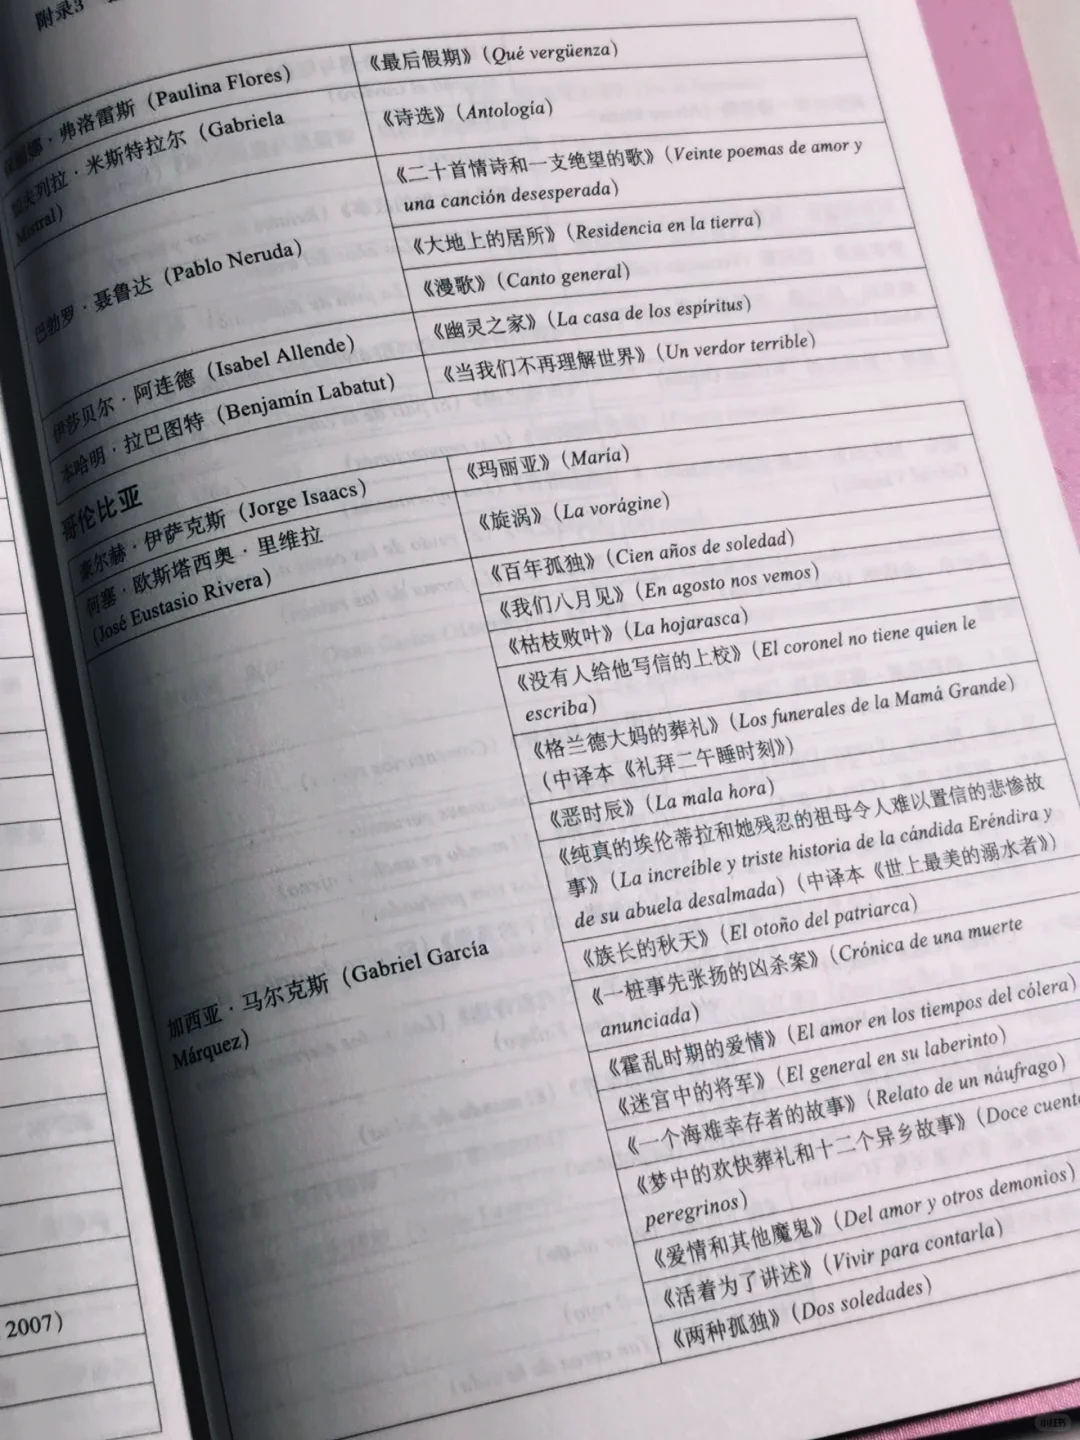 附录3
娜·弗洛雷斯（Paulina Flores）
《最后假期》（Qué vergüenza）
夫列拉·米斯特拉尔（Gabriela
Mistral）
《诗选》（Antología）
巴勃罗·聂鲁达（Pablo Neruda）
《二十首情诗和一支绝望的歌》（Veinte poemas de amor y
una canción desesperada）
《大地上的居所》（Residencia en la tierra）
《漫歌》（Canto general）
伊莎贝尔·阿连德（Isabel Allende）
《幽灵之家》（La casa de los espíritus）
本哈明·拉巴图特（Benjamín Labatut）
《当我们不再理解世界》（Un verdor terrible）
哥伦比亚
豪尔赫·伊萨克斯（Jorge Isaacs）
《玛丽亚》（María）
何塞·欧斯塔西奥·里维拉
（José Eustasio Rivera）
《旋涡》（La vorágine）
加西亚·马尔克斯（Gabriel García
Márquez）
《百年孤独》（Cien años de soledad）
《我们八月见》（En agosto nos vemos）
《枯枝败叶》（La hojarasca）
《没有人给他写信的上校》（El coronel no tiene quien le
escriba）
《格兰德大妈的葬礼》（Los funerales de la Mamá Grande）
（中译本《礼拜二午睡时刻》）
《恶时辰》（La mala hora）
《纯真的埃伦蒂拉和她残忍的祖母令人难以置信的悲惨故
事》（La increíble y triste historia de la cándida Eréndira y
de su abuela desalmada）（中译本《世上最美的溺水者》）
《族长的秋天》（El otoño del patriarca）
《一桩事先张扬的凶杀案》（Crónica de una muerte
anunciada）
《霍乱时期的爱情》（El amor en los tiempos del cólera）
《迷宫中的将军》（El general en su laberinto）
《一个海难幸存者的故事》（Relato de un náufrago）
《梦中的欢快葬礼和十二个异乡故事》（Doce cuento
peregrinos）
《爱情和其他魔鬼》（Del amor y otros demonios）
《活着为了讲述》（Vivir para contarla）
《两种孤独》（Dos soledades）
2007）